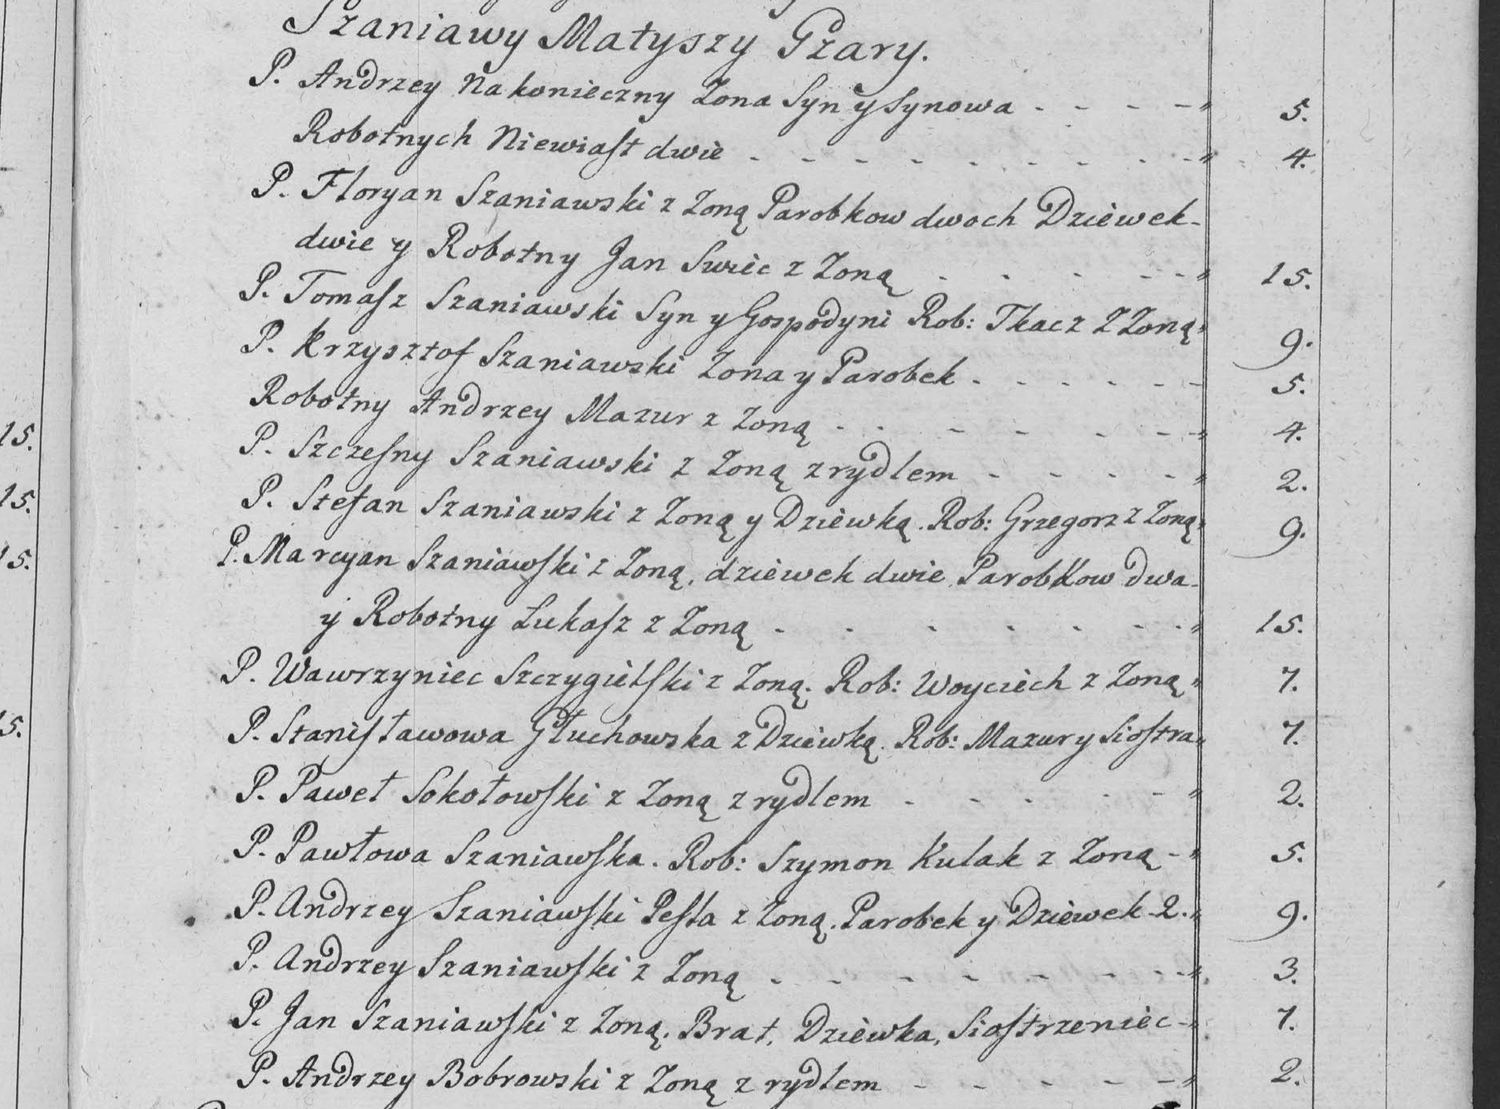 Szaniawy Matyszy Gzary.
P. Andrzey Nakonieczny Zona Syn y Synowa - - - - " 5.
Robotnych Niewiast dwie - - - - - - - - - " 4.
P. Floryan Szaniawski z Zoną Parobkow dwoch Dziéwek-
dwie y Robotny Jan Swiec z Zoną - - - - - " 15.
P. Tomasz Szaniawski Syn y Gospodyni Rob: Tkacz Z Zoną " 9.
P. Krzysztof Szaniawski Zona y Parobek - - - - - - 5.
Robotny Andrzey Mazur z Zoną - - - - - - " 4.
P. Szczesny Szaniawski z Zoną z rydlem - - - - " 2.
P. Stefan Szaniawski z Zoną y Dziéwką. Rob: Grzegorz z Zoną " 9.
P. Marcyan Szaniawski z Zoną, dziéwek dwie Parobkow dwa-
y Robotny Łukasz z Zoną - - - - - - - " 15.
P. Wawrzyniec Szczygielski z Zoną. Rob: Woyciech z Zoną " 7.
P. Stanisławowa Głuchowska z Dziéwką. Rob: Mazur y Siostra " 7.
P. Paweł Sokołowski z Zoną z rydlem - - - - - " 2.
P. Pawłowa Szaniawska. Rob: Szymon Kulak z Zoną - " 5.
P. Andrzey Szaniawski Pesla z Zoną. Parobek y Dziéwek 2. " 9.
P. Andrzey Szaniawski z Zoną - - - - - - - " 3.
P. Jan Szaniawski z Zoną. Brat, Dziéwka, Siostrzeniec - " 7.
P. Andrzey Bobrowski z Zoną z rydlem - - - - - " 2.
15.
15.
15.
5.